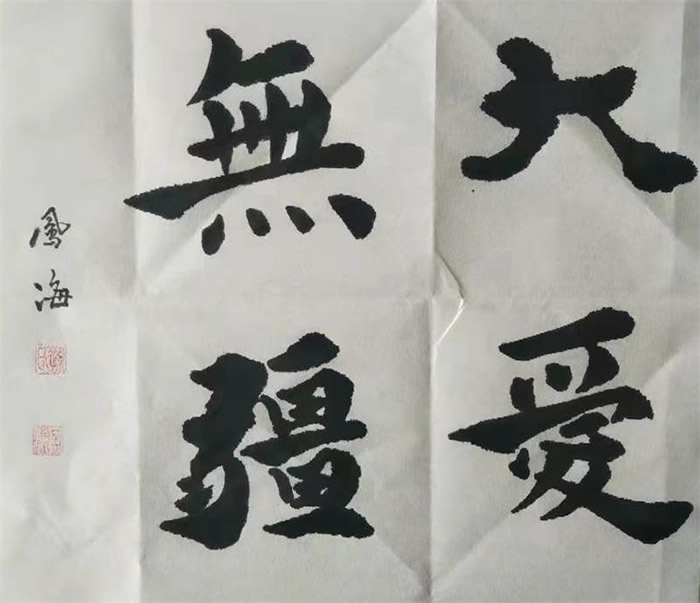 大愛
無疆
鳳海